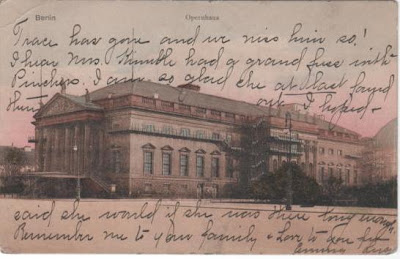 Berlin
Opernhaus
Trace has gone and we miss him so!
I hear Mrs. Kimble had a grand fuss with
Pinchers. I am so glad she at last found
things out. I hoped
said she would if she was there long enough.
Remember me to your family & Love to you from